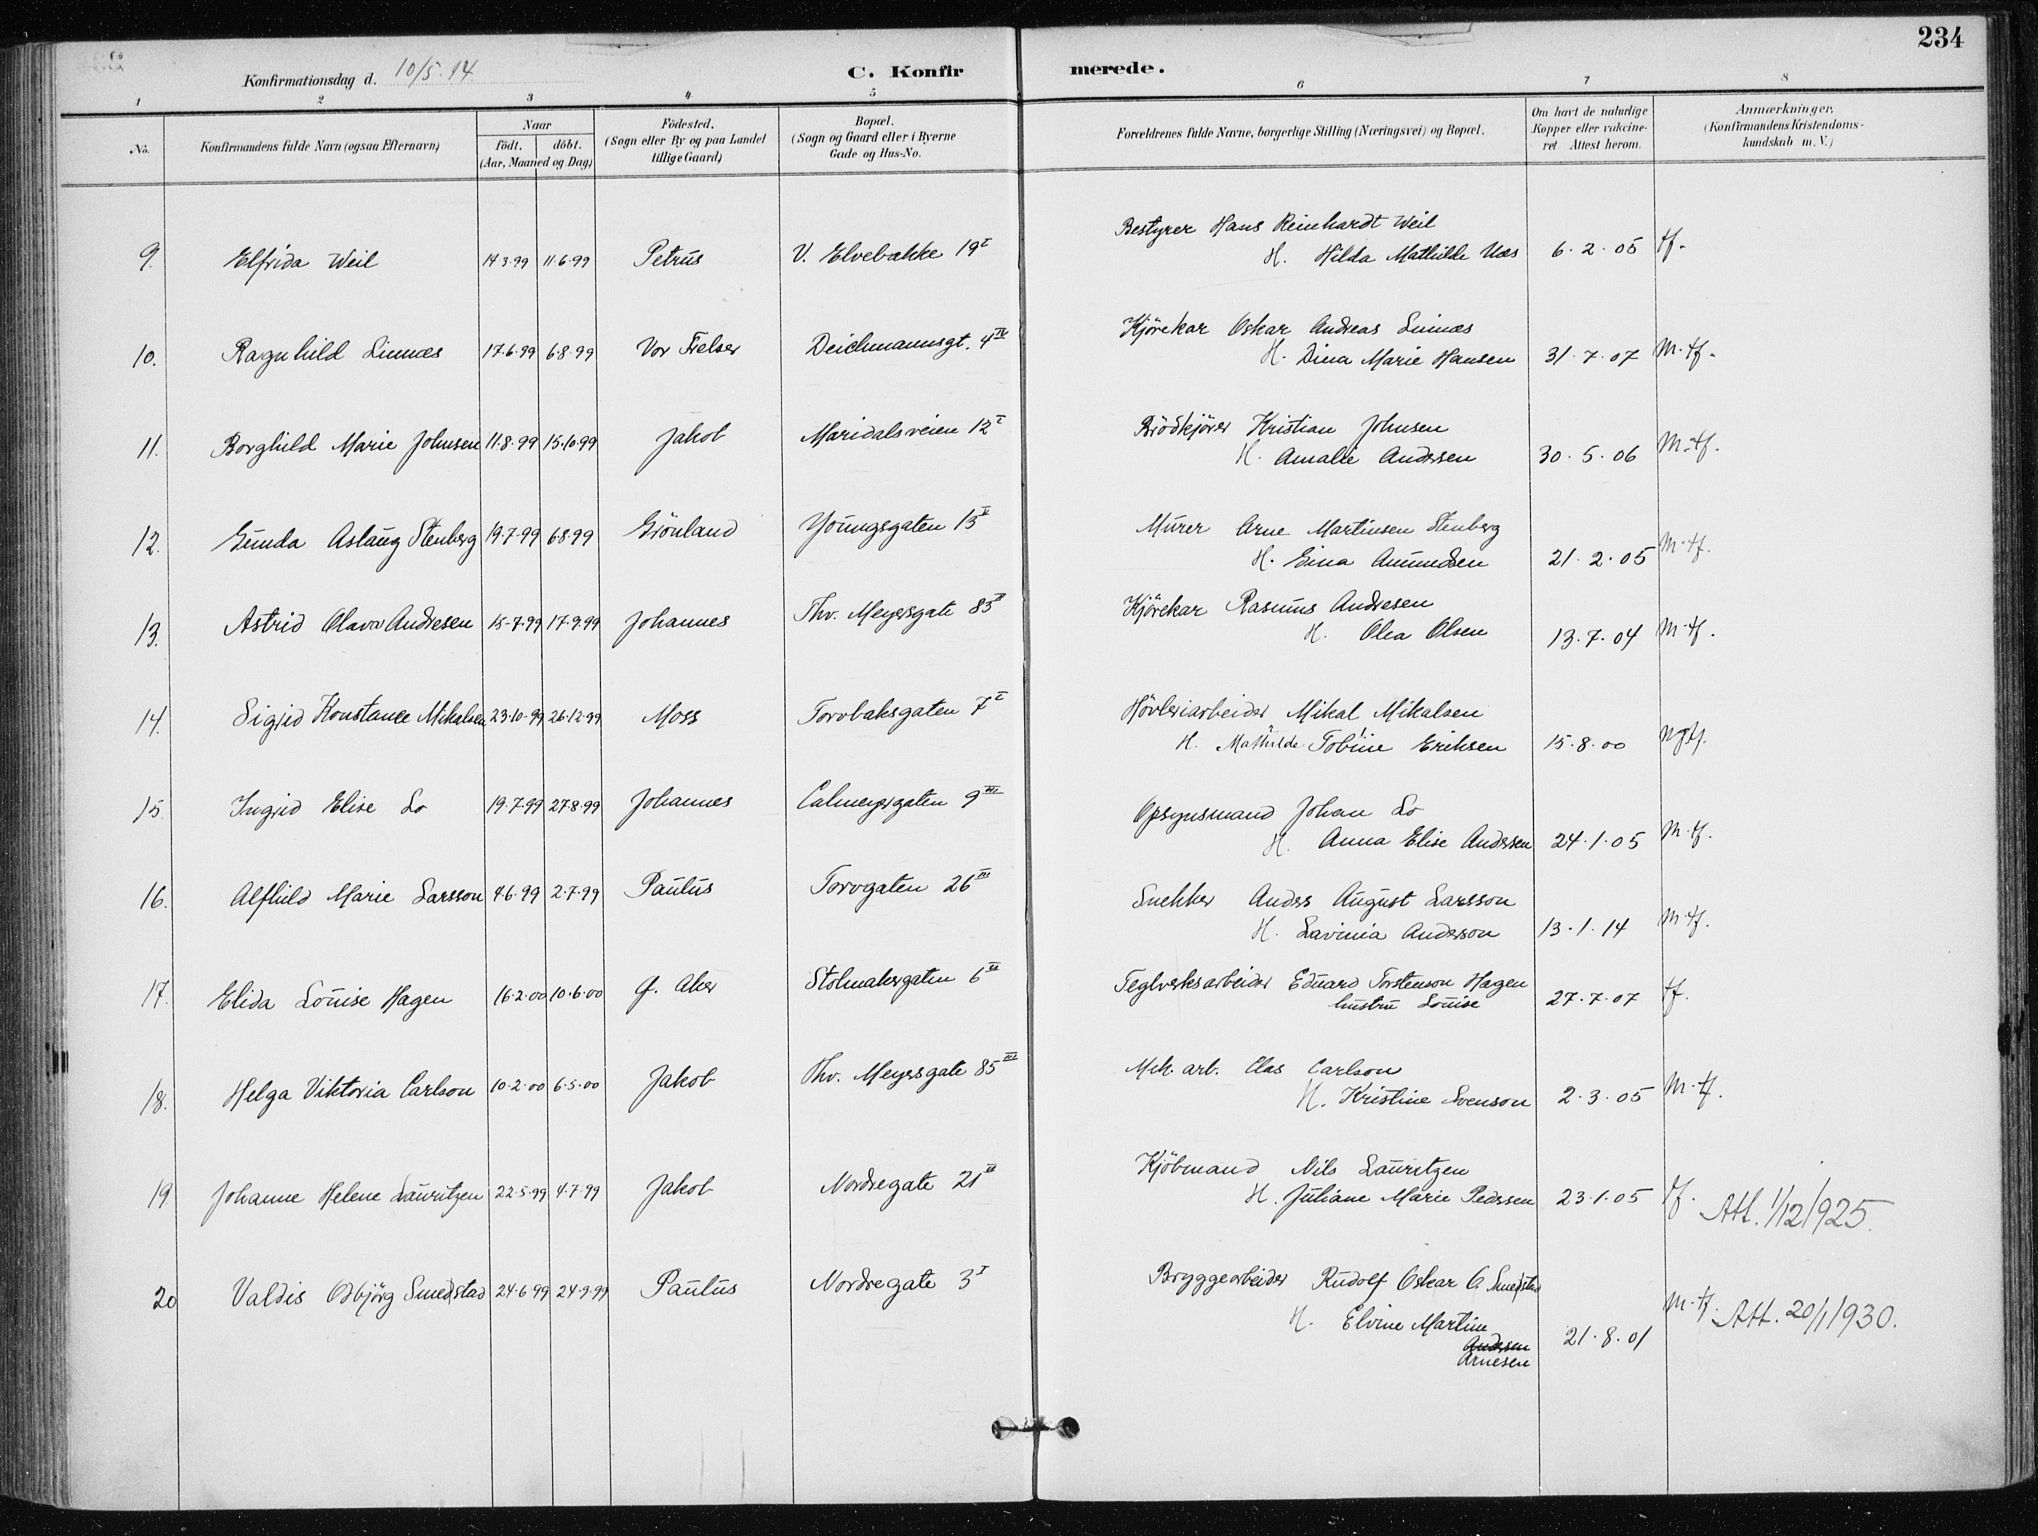 234
Konfirmationsdag d. 10/5 14
C. Konfirmerede.
1 2 3 4 5 6 7 8
No. Konfirmandens fulde Navn (ogsaa Efternavn) Naar født. døbt. (Aar, Maaned og Dag) Födested. (Sogn eller By og paa Landet tillige Gaard) Bopæl. (Sogn og Gaard eller i Byerne Gade og Hus-No. Forældrenes fulde Navne, borgerlige Stilling (Næringsvei) og Bopæl. Om havt de naturlige Kopper eller vakcineret Attest herom. Anmærkninger. (Konfirmandens Kristendomskundskab m. V.)
9. Elfrida Weil 14.3.99 11.6.99 Petrus V. Elvebakke 19 I Bestyrer Hans Reinhardt Weil
H. Hilda Mathilde Næs 6.2.05 tf.
10. Ragnhild Linnæs 17.6.99 6.8.99 Vor Frelser Deichmannsgt. 4 IV Kjörekar Oskar Andreas Linnæs
H. Dina Marie Hansen 31.7.07 M.tf.
11. Borghild Marie Johnsen 11.8.99 15.10.99 Jakob Maridalsveien 12 I Brödkjører Kristian Johnsen
H. Amalie Andersen 30.5.06 M.tf.
12. Gunda Aslaug Stenberg 19.7.99 6.8.99 Grönland Youngsgaten 13 V Murer Arne Martinsen Stenberg
H. Gina Amundsen 21.2.05 M.tf.
13. Astrid Olava Andresen 15.7.99 17.9.99 Johannes Thv. Meyersgate 83 II Kjörekar Rasmus Andresen
H. Olea Olsen 13.7.04 M.tf.
14. Sigrid Konstance Mikalsen 23.10.99 26.12.99 Moss Torvbakgaten 7 I Hövleriarbeider Mikal Mikalsen
H. Mathilde Tobine Eriksen 15.8.00 Ngtf.
15. Ingrid Elise Lo 19.7.99 27.8.99 Johannes Calmeyergaten 9 III Opsynsmand Johan Lo
H. Anna Elise Andersen 24.1.05 M.tf.
16. Alfhild Marie Larsson 4.6.99 2.7.99 Paulus Torvgaten 26 III Snekker Anders August Larsson
H. Lavinia Anderson 13.1.14 M.tf.
17. Elida Louise Hagen 16.2.00 10.6.00 Ø. Aker Stolmakergaten 6 II Teglverksarbeider Eduard Torstenson Hagen
hustru Louise 27.7.07 tf.
18. Helga Viktoria Carlson 10.2.00 6.5.00 Jakob Thv. Meyersgate 85 III Mek. arb. Clas Carlson
H. Kristine Svenson 2.3.05 M.tf.
19 Johanne Helene Lauritzen 22.5.99 4.7.99 Jakob Nordregate 21 II Kjöbmand Nils Lauritzen
H. Juliane Marie Pedersen 23.1.05 tf. Att. 1/12/925.
20 Valdis Odbjörg Smedstad 24.6.99 24.9.99 Paulus Nordregate 3 I Bryggearbeider Rudolf Oskar O. Smedstad
H. Elvine Martine
Andersen
Arnesen 21.8.01 M.tf. Att. 20/1 1930.